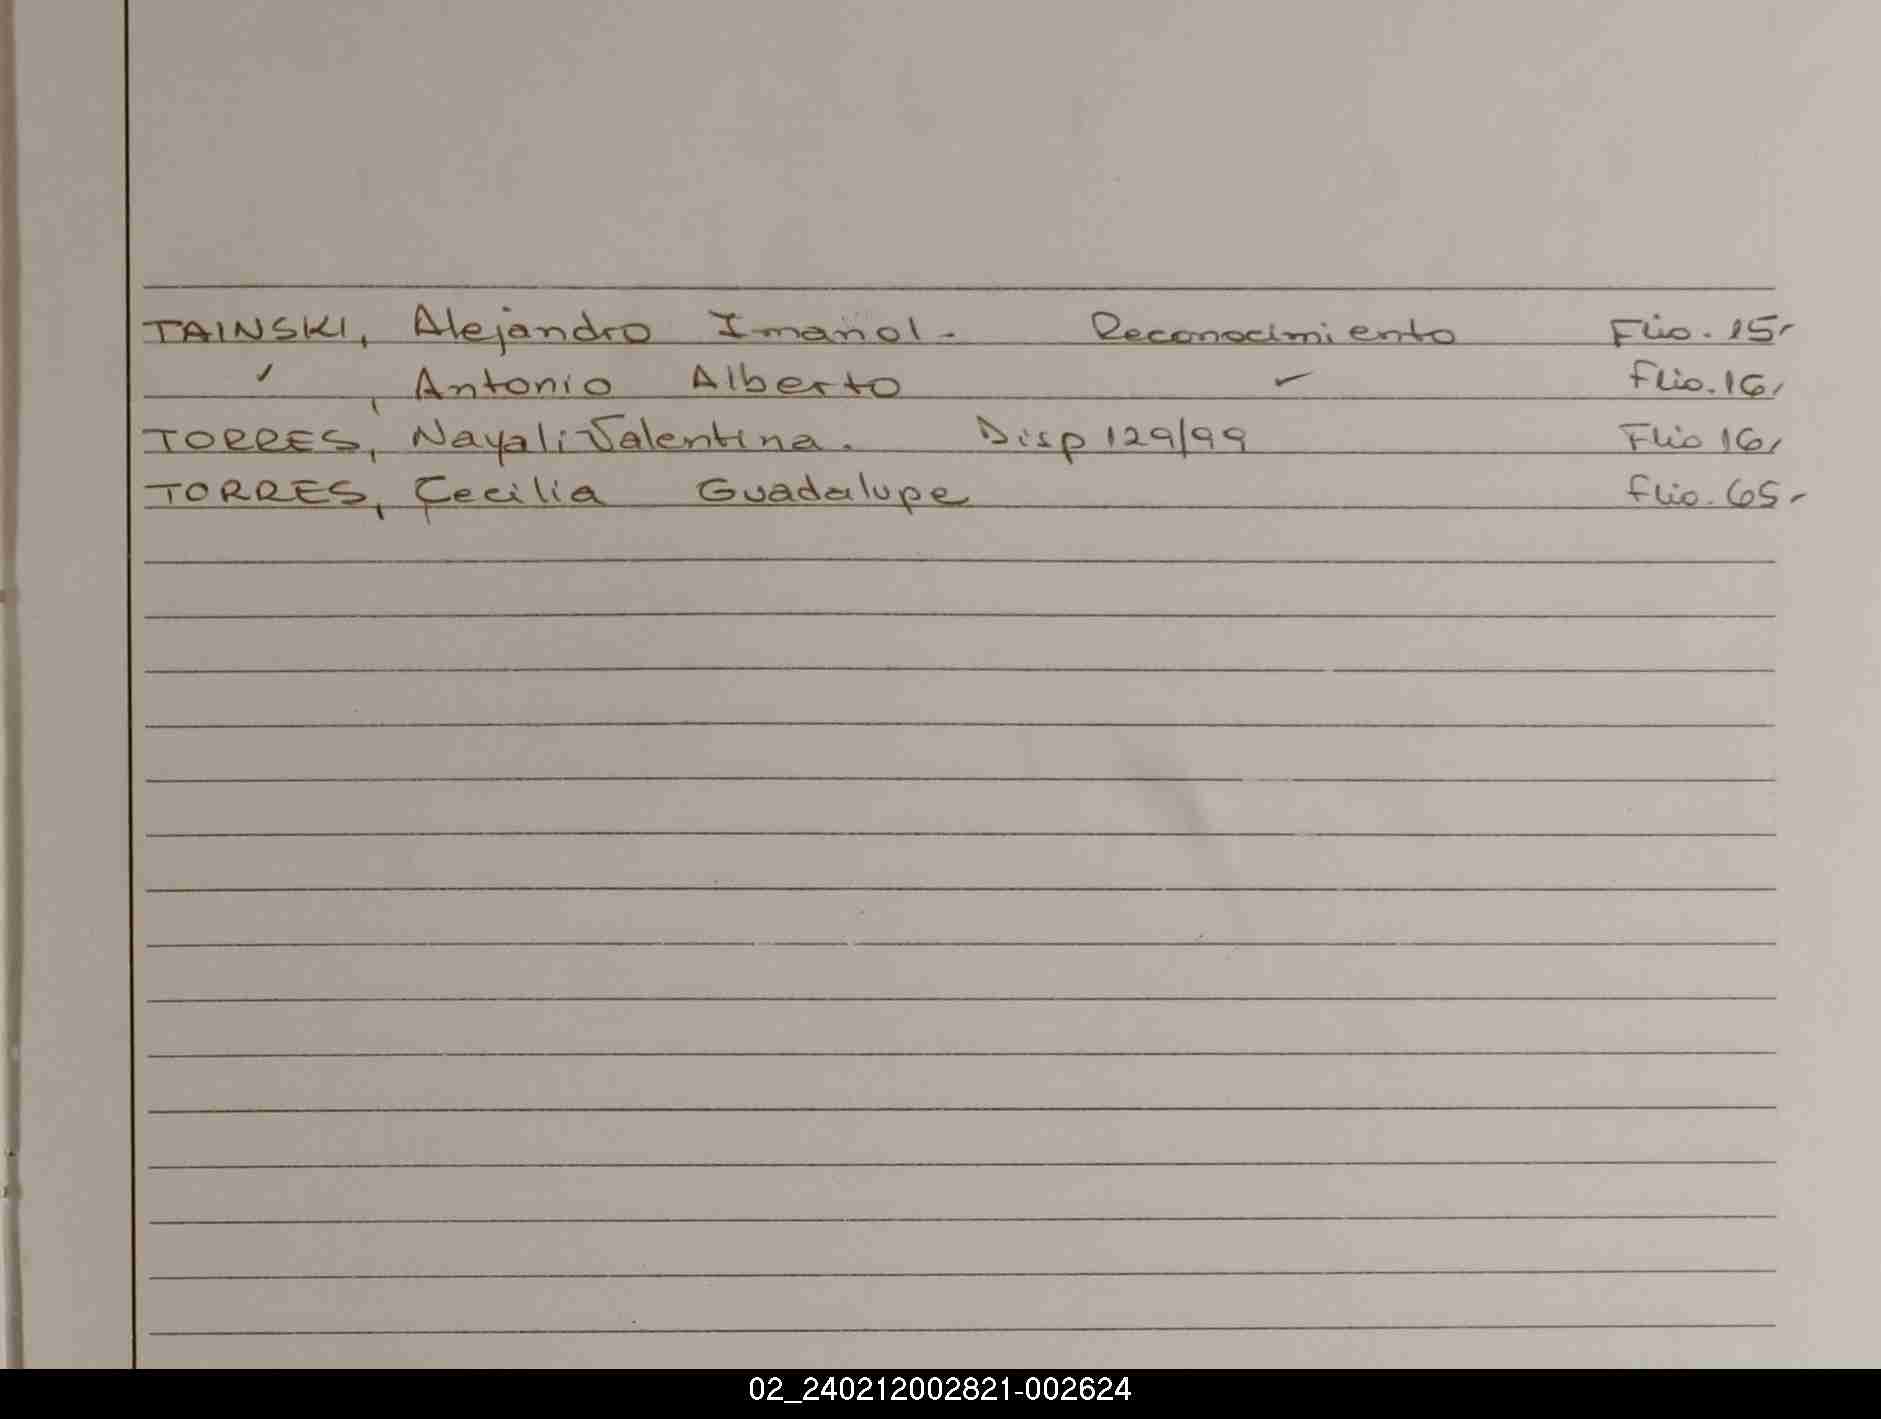 TAINSKI, Alejandro Imanol. Reconocimiento Flio. 15-
✓, Antonio Alberto ✓ flio. 16,
TORRES, Nayali Valentina. Disp 129/99 Flio 16,
TORRES, Cecilia Guadalupe flio. 65-
02_240212002821-002624